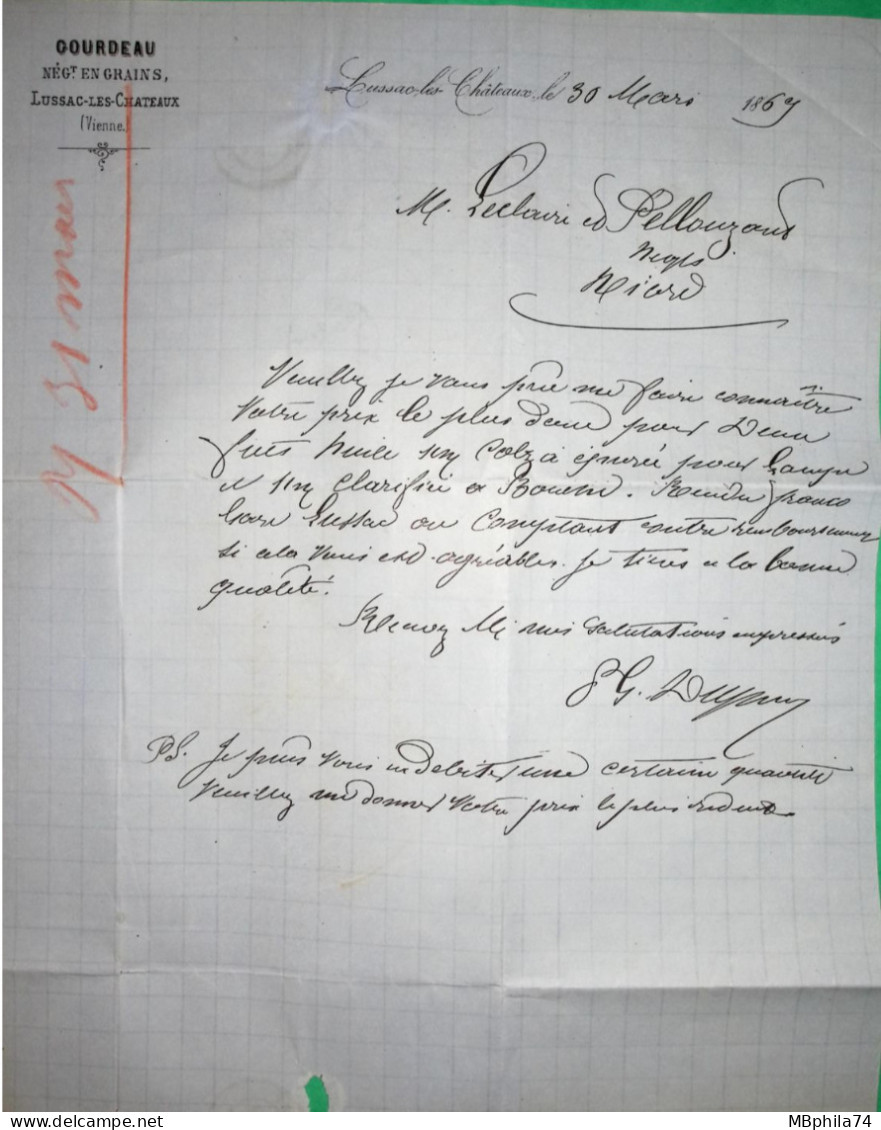 GOURDEAU
NÉGT EN GRAINS,
LUSSAC-LES-CHATEAUX
(Vienne.)
Lussac-les-Châteaux, le 30 Mars 1869
M. Leclair et Pellouzard
Negts
Niord
R 31 mars
Veuillez je vous prie me faire connaître
Votre prix le plus doux pour Deux
futs huile un Colza épurée pour Lampe
et un Clarifié a Bouche. Rendu franco
Gare Lussac au Comptant contre remboursement
si cela vous est agréable. Je tiens a la bonne
qualité.
Recevez Mr mes salutations empressées
PS. Je puis vous en debiter une certaine quantité
Veuillez me donner Votre prix le plus reduit
MBphila74